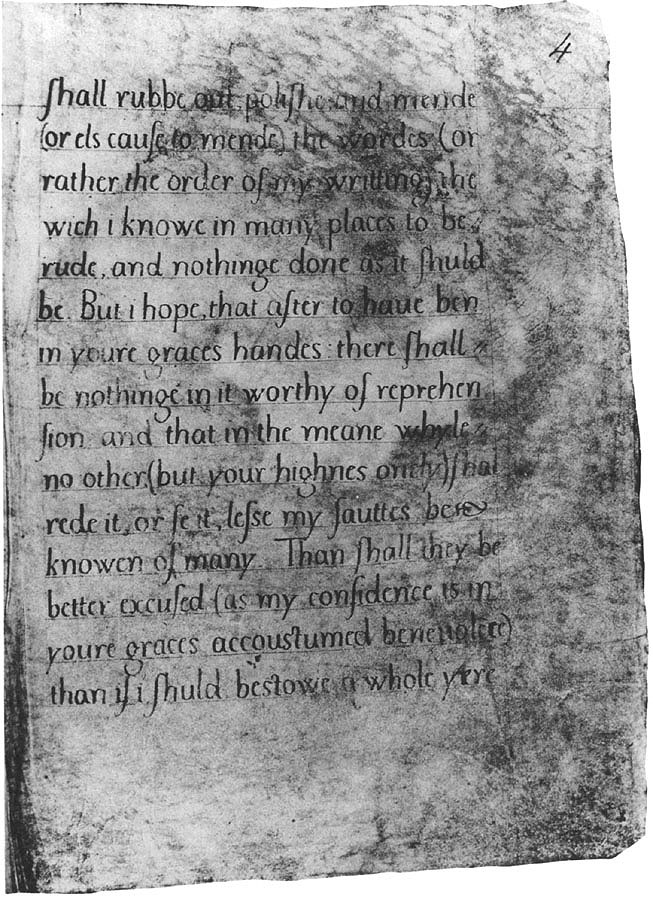 4
shall rubbe out, polishe and mende
(or els cause to mende) the wordes (or
rather the order of my writting) the
wich i knowe in many places to be
rude, and nothinge done as it shuld
be. But i hope, that after to haue ben
in youre graces handes: there shall
be nothinge in it worthy of reprehen
sion and that in the meane whyle
no other, (but your highnes onely) shal
rede it, or se it, lesse my fauttes be
knowen of many. Than shall they be
better excused (as my confidence is in
youre graces accoustumed beneuolece)
than if i shuld bestowe a whole yere